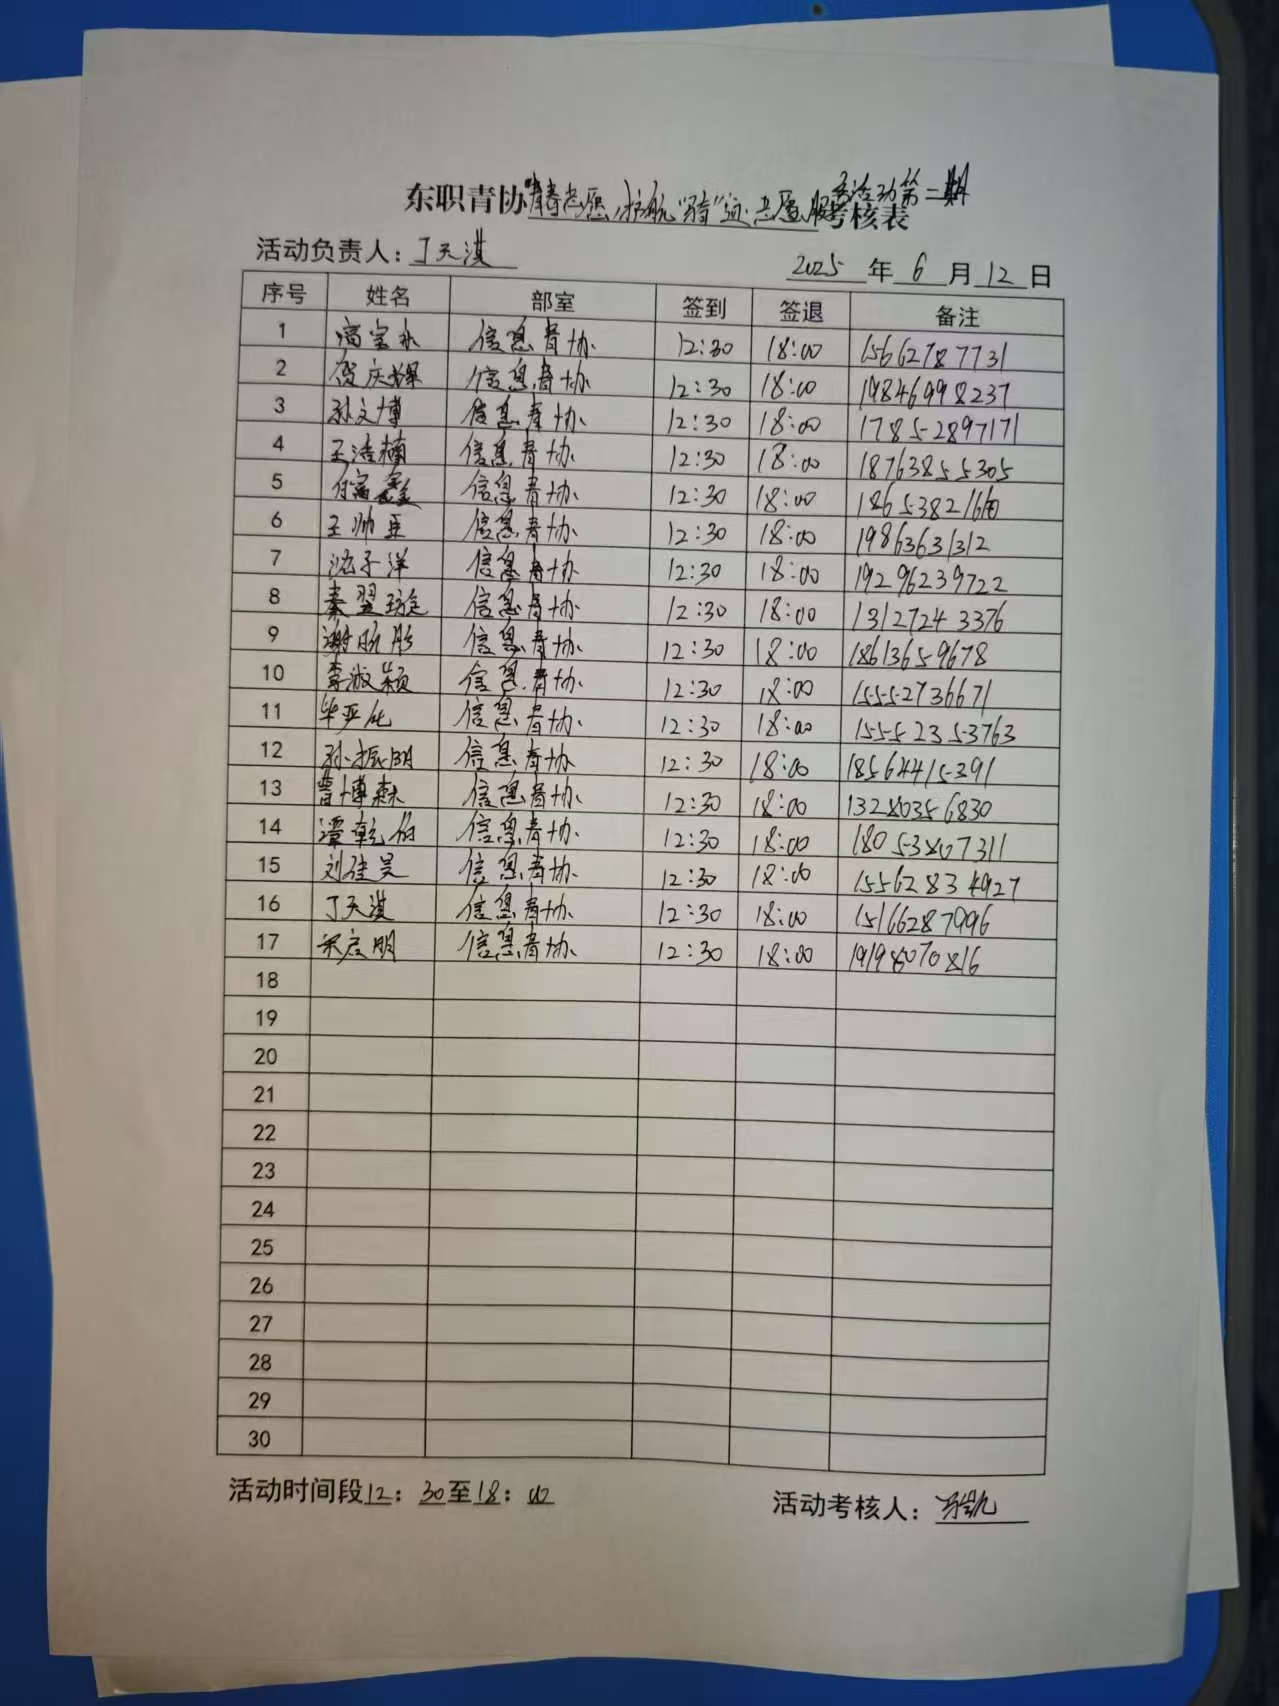 东职青协"青春志愿,护航"骑"迹志愿服务活动第二期考核表
活动负责人：丁天淇 2025年6月12日
序号 姓名 部室 签到 签退 备注
1 高宝水 信息青协 12:30 18:00 15662787731
2 贺庆辉 信息青协 12:30 18:00 19846998237
3 孙文博 信息青协 12:30 18:00 17852897171
4 王浩楠 信息青协 12:30 18:00 18763855305
5 信息青协 12:30 18:00
6 王帅臣 信息青协 12:30 18:00 19863631312
7 子洋 信息青协 12:30 18:00 19296239722
8 秦翌璇 信息青协 12:30 18:00 13127243376
9 谢航彤 信息青协 12:30 18:00 18613659678
10 李淑颖 信息青协 12:30 18:00 15552736671
11 毕亚化 信息青协 12:30 18:00 15552353763
12 孙振明 信息青协 12:30 18:00 18564415391
13 曹博森 信息青协 12:30 18:00 13280356830
14 潭乾伯 信息青协 12:30 18:00 18053807311
15 刘佳昊 信息青协 12:30 18:00 15562834927
16 丁天淇 信息青协 12:30 18:00 15166287996
17 宋启明 信息青协 12:30 18:00 19198070816
18
19
20
21
22
23
24
25
26
27
28
29
30
活动时间段12：30至18：00 活动考核人：